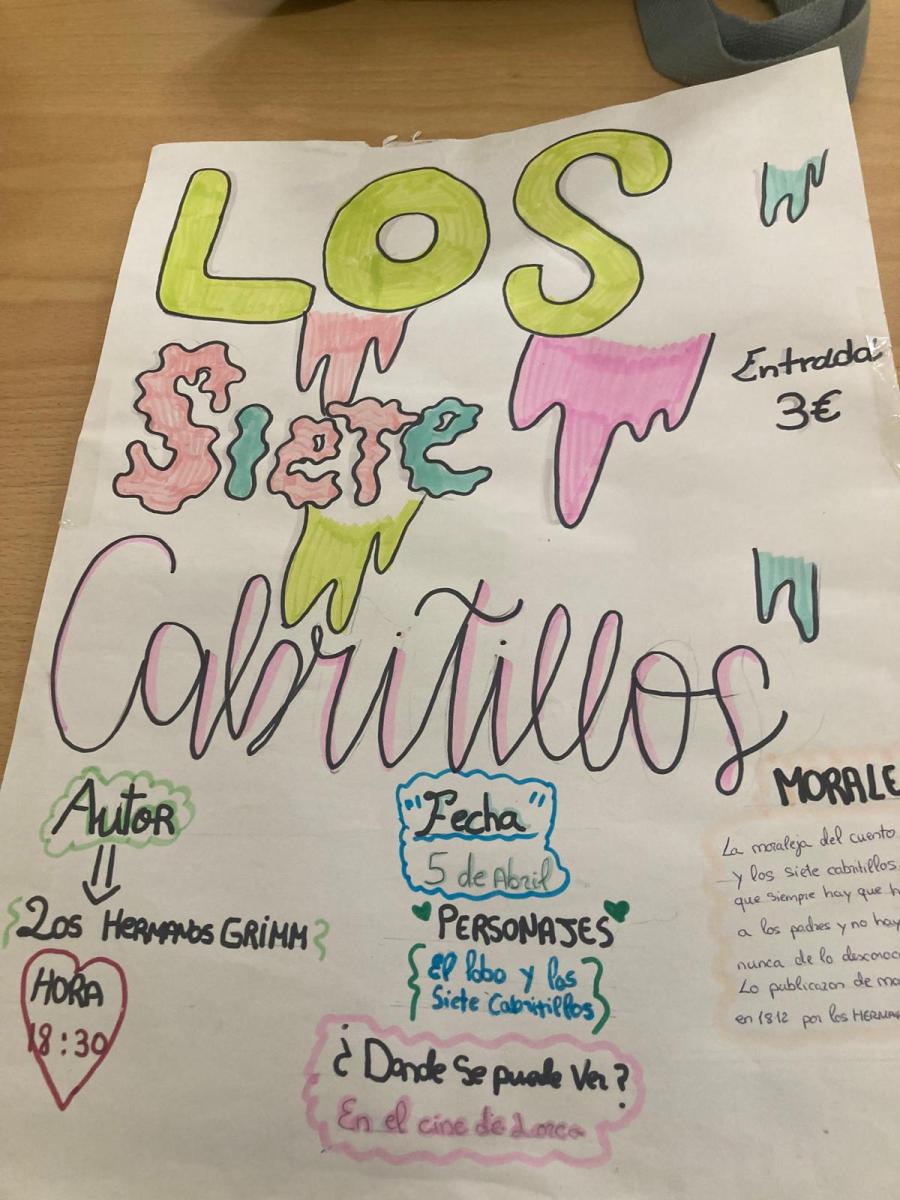 LOS
Siete
Cabritillos
Entrada
3€
Autor
Los HERMANOS GRIMM
HORA
18:30
"Fecha"
5 de Abril
PERSONAJES
El lobo y los
Siete Cabritillos
¿Donde Se puede Ver?
En el cine de Lorca
MORALE
La moraleja del cuento
y los siete cabritillos
que siempre hay que h
a los padres y no hay
nunca de lo desconoc
Lo publicazon de ma
en 1812 por los HERMA